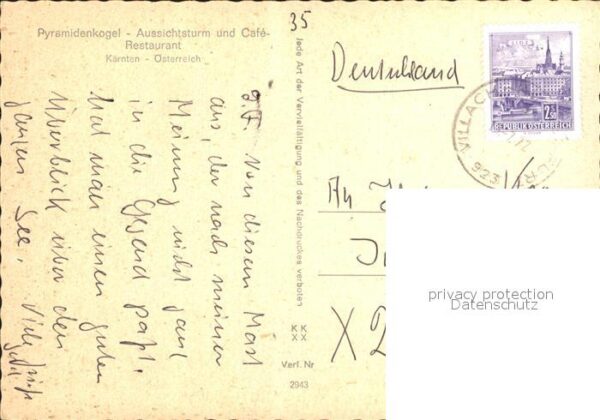 Pyramidenkogel - Aussichtsturm und Café-
Restaurant
Kärnten - Österreich
35
Von diesem Mast
aus, der nach meiner
Meinung nicht ganz
in die Gegend paßt,
hat man einen guten
Überblick über den
ganzen See. Viele
Jede Art der Vervielfältigung und des Nachdruckes verboten
KK
XX
Verl. Nr
2943
Deutschland
2.50
REPUBLIK ÖSTERREICH
VILLACH
An
X
privacy protection
Datenschutz